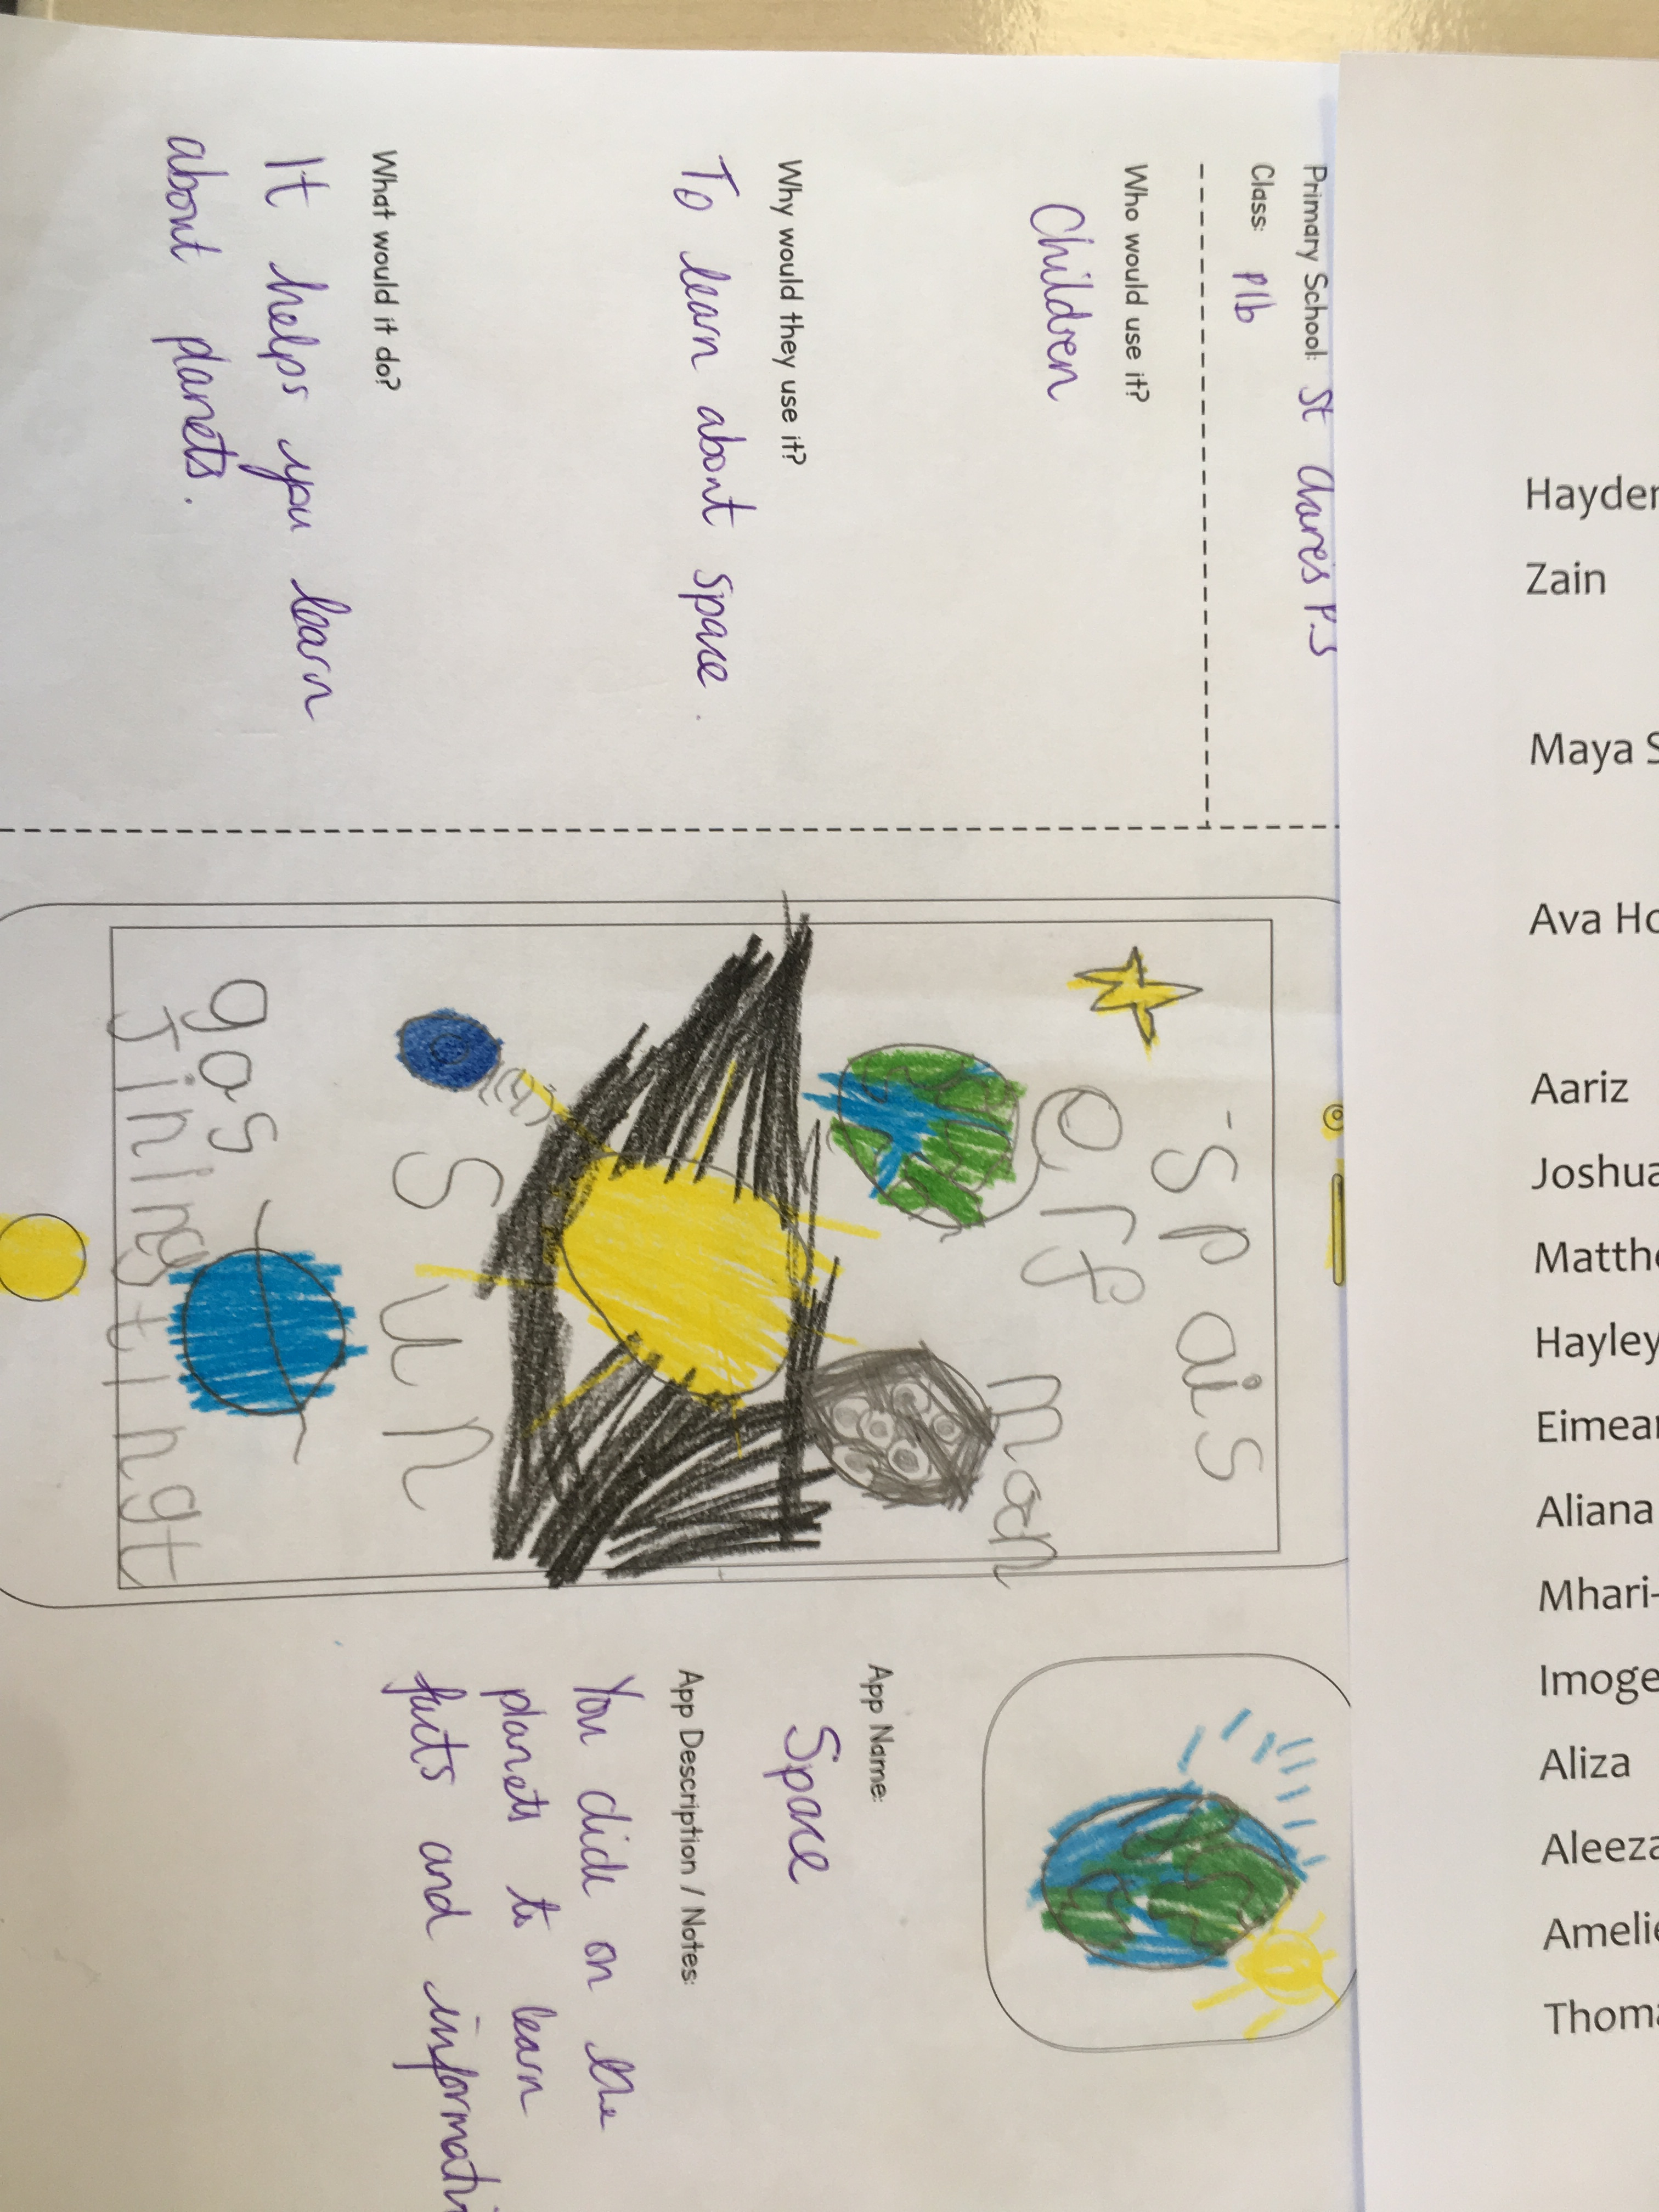 Primary School: St Clare's P.S
Class: P1b
Who would use it?
Children
Why would they use it?
To learn about space.
What would it do?
It helps you learn
about planets.
spais
erf
moon
sun
gas
App Name:
Space
App Description / Notes:
You click on the
planets to learn
facts and informati
Hayden
Zain
Maya S
Ava Ho
Aariz
Joshua
Matthe
Hayley
Eimear
Aliana
Mhari-
Imoge
Aliza
Aleeza
Amelie
Thoma